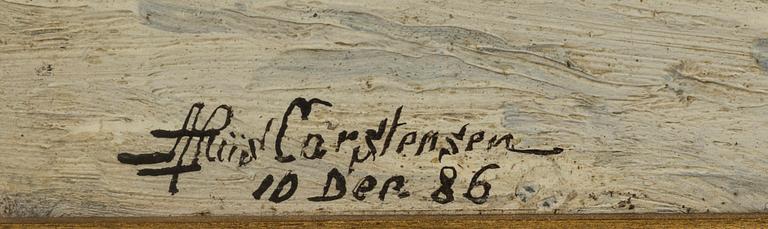 A Riis Carstensen
10 Dec 86